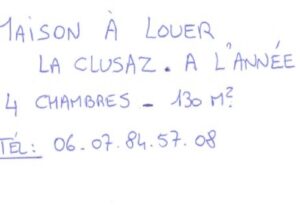 MAISON À LOUER
LA CLUSAZ. A L'ANNÉE
4 CHAMBRES - 130 M²
TÉL: 06.07.84.57.08